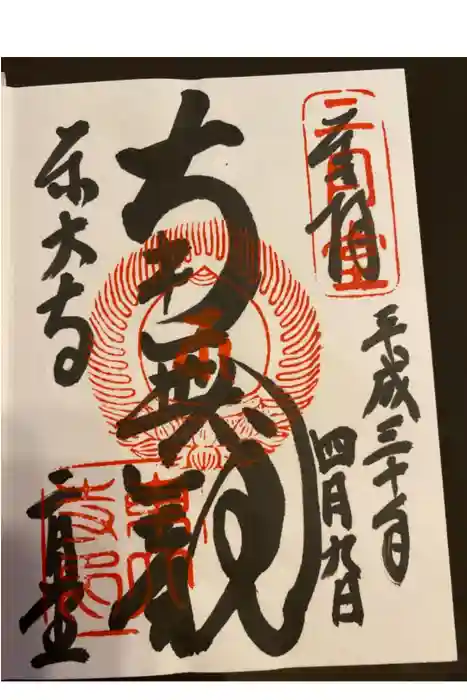 奉拝
二月堂
平成三十年
四月九日
南無観
東大寺
二月堂